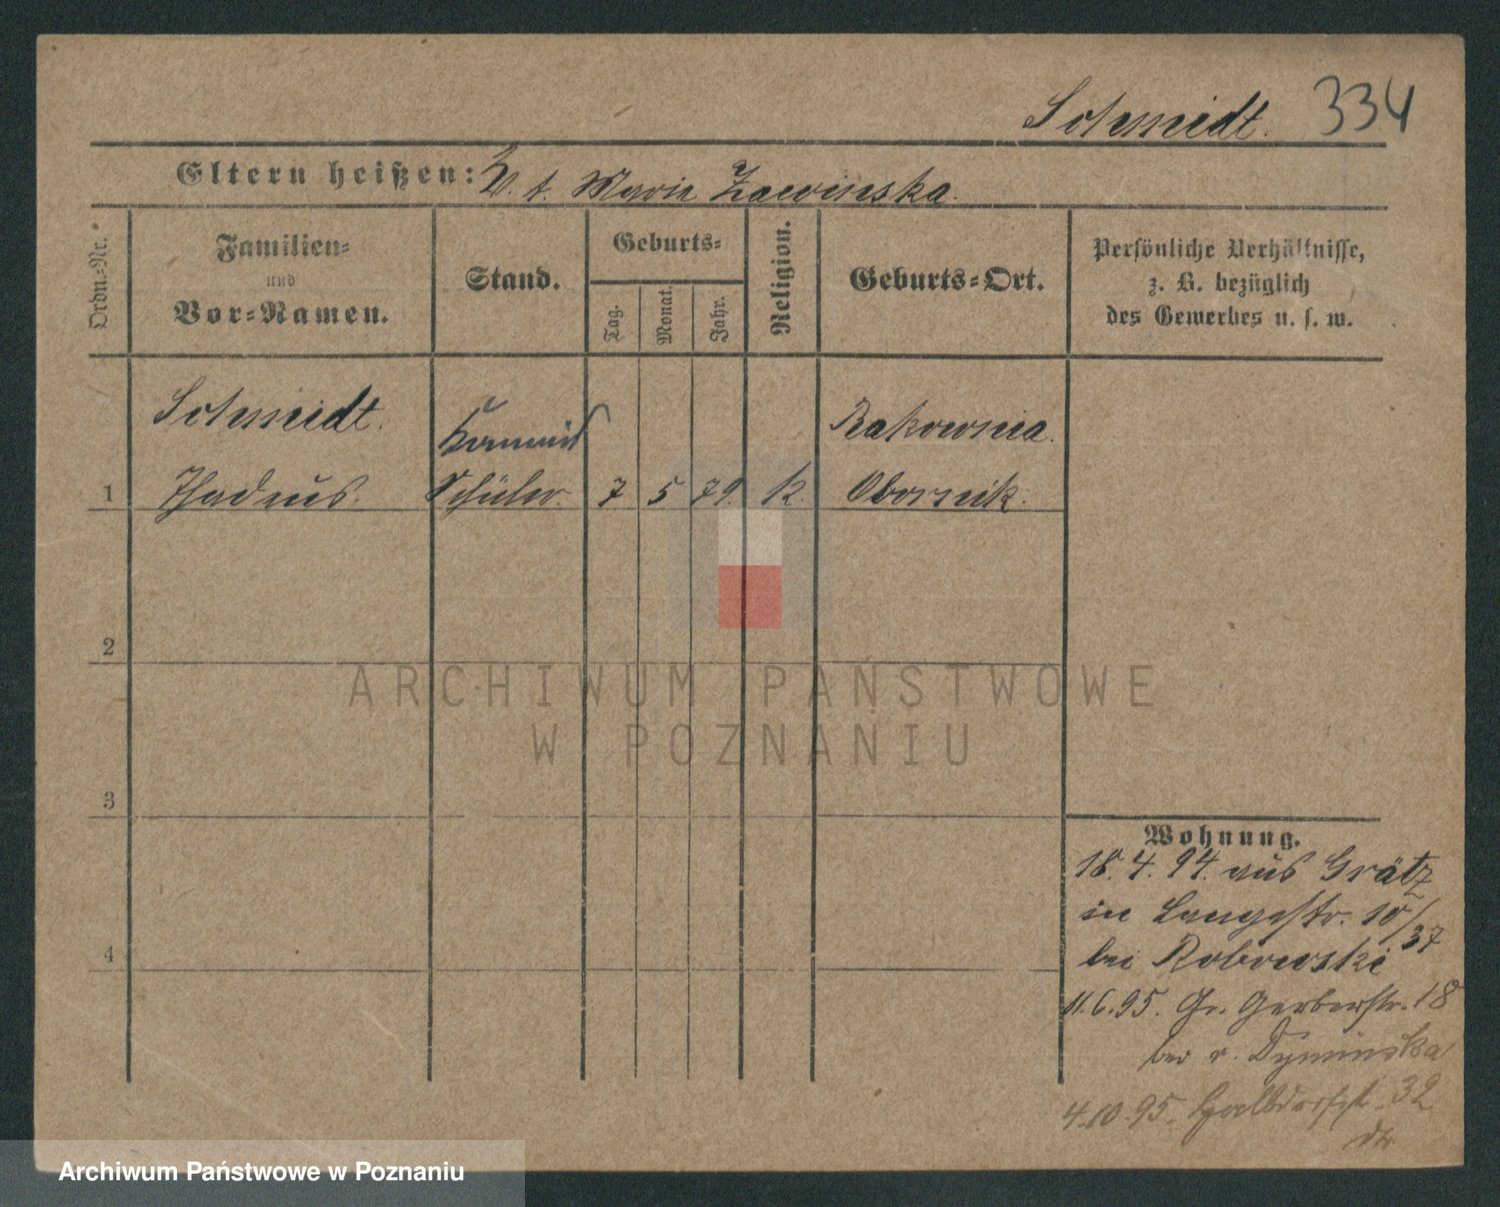 Schmidt. 334
Eltern heißen: V. t. Marie Zawinska.
Ordn.-Nr.
Familien-
und
Vor-Namen.
Stand.
Geburts-
Tag.
Monat.
Jahr.
Religion.
Geburts-Ort.
Persönliche Verhältnisse,
z. B. bezüglich
des Gewerbes u. s. w.
Schmidt.
Kommis
Rakownia.
1 Thadeus. Schüler. 7 5 79. k. Obornik.
2
3
4
Wohnung.
18. 4. 94. aus Grätz
in Langestr. 10/37
bei Robowski
11.6.95. Gr. Gerberstr. 18
bei v. Dyminska
4.10.95. Halbdorfstr. 32
ARCHIWUM PAŃSTWOWE
W POZNANIU
Archiwum Państwowe w Poznaniu